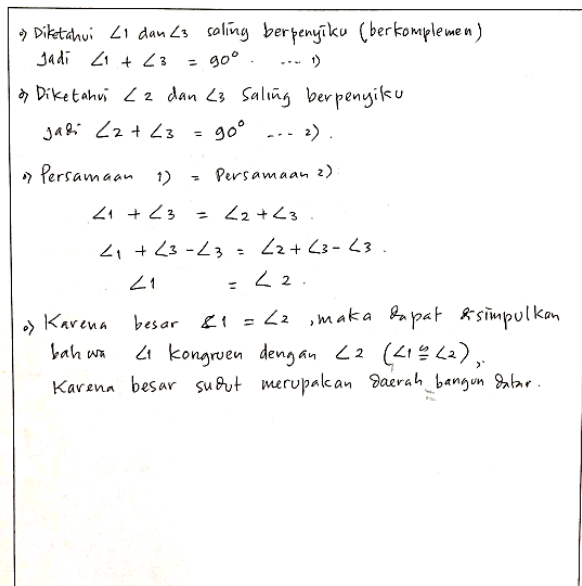 •) Diketahui ∠1 dan ∠3 saling berpenyiku (berkomplemen)
Jadi ∠1 + ∠3 = 90° . ... 1)
•) Diketahui ∠2 dan ∠3 Saling berpenyiku
Jadi ∠2 + ∠3 = 90° ... 2) .
•) Persamaan 1) = Persamaan 2)
∠1 + ∠3 = ∠2 + ∠3 .
∠1 + ∠3 - ∠3 = ∠2 + ∠3 - ∠3 .
∠1 = ∠2 .
•) Karena besar ∠1 = ∠2 , maka dapat disimpulkan
bahwa ∠1 kongruen dengan ∠2 (∠1 ≅ ∠2) ,
Karena besar sudut merupakan daerah bangun datar .